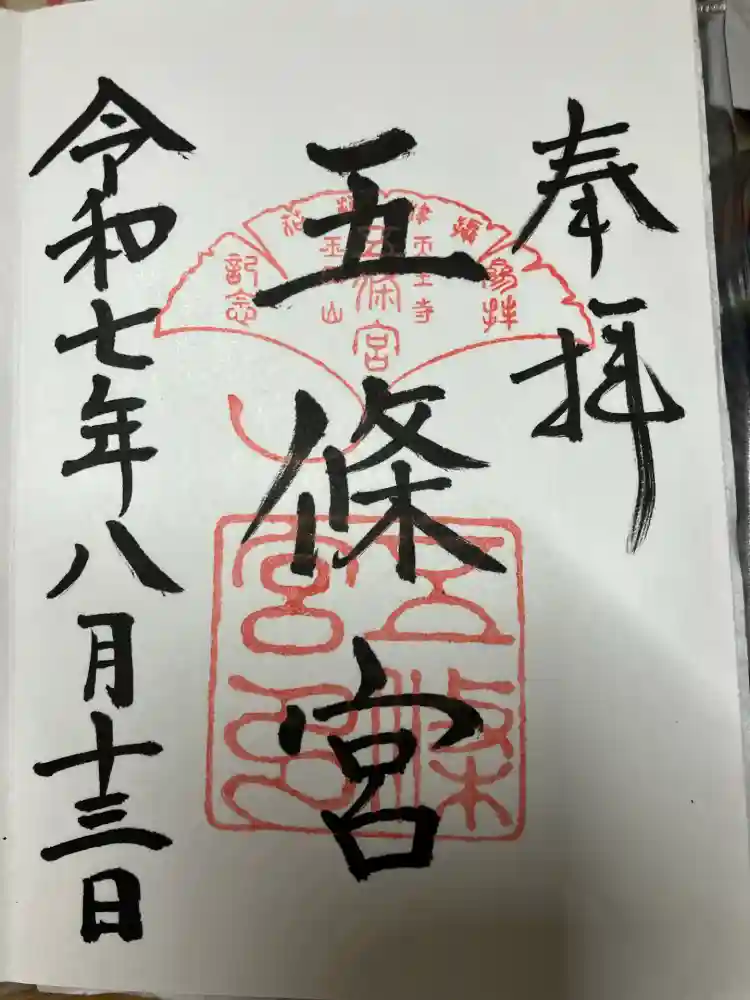 奉拝
五條宮
令和七年八月十三日
参拝
天王寺
五條宮
記念
五條宮印